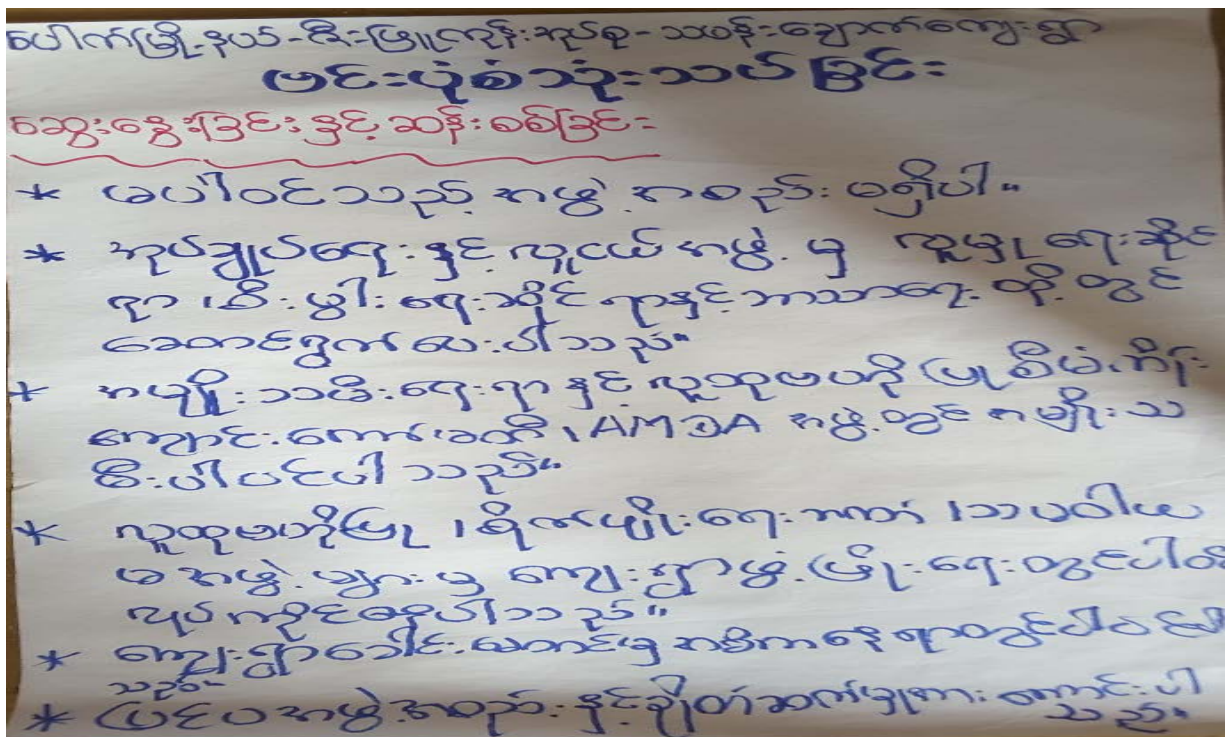 ပေါက်မြို့နယ်-ဇီးဖြူကုန်းအုပ်စု-သဖန်းချောက်ကျေးရွာ
ဗင်းပုံစံသုံးသပ်ခြင်း
ဆွေးနွေးခြင်းနှင့်ဆန်းစစ်ခြင်း
* မပါဝင်သည့်အဖွဲ့အစည်းမရှိပါ။
* အုပ်ချုပ်ရေးနှင့်လူငယ်အဖွဲ့မှ လူမှုရေးဆိုင်
ရာ၊စီးပွါးရေးဆိုင်ရာနှင့်ဘာသာရေးတို့တွင်
ဆောင်ရွက်ပေးပါသည်။
* အမျိုးသမီးရေးရာနှင့်လူထုဗဟိုပြုစီမံကိန်း
ကျောင်းကော်မတီ၊AMDA အဖွဲ့တွင်အမျိုးသ
မီးပါဝင်ပါသည်။
* လူထုဗဟိုပြု၊စိုက်ပျိုးရေးဘဏ်၊သဘာဝါယ
မအဖွဲ့များမှ ကျေးရွာဖွံ့ဖြိုးရေးတွင်ပါဝင်
လုပ်ကိုင်နေပါသည်။
* ကျေးရွာခေါင်းဆောင်မှအဓိကနေရာတွင်ပါဝင်ပါ
သည်။
* ပြင်ပအဖွဲ့အစည်းနှင့်ချိတ်ဆက်မှုအားကောင်းပါ
သည်။